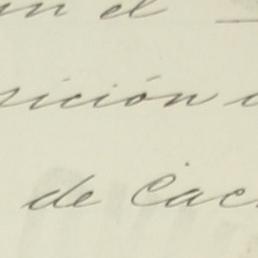 un el
sición
de Cac